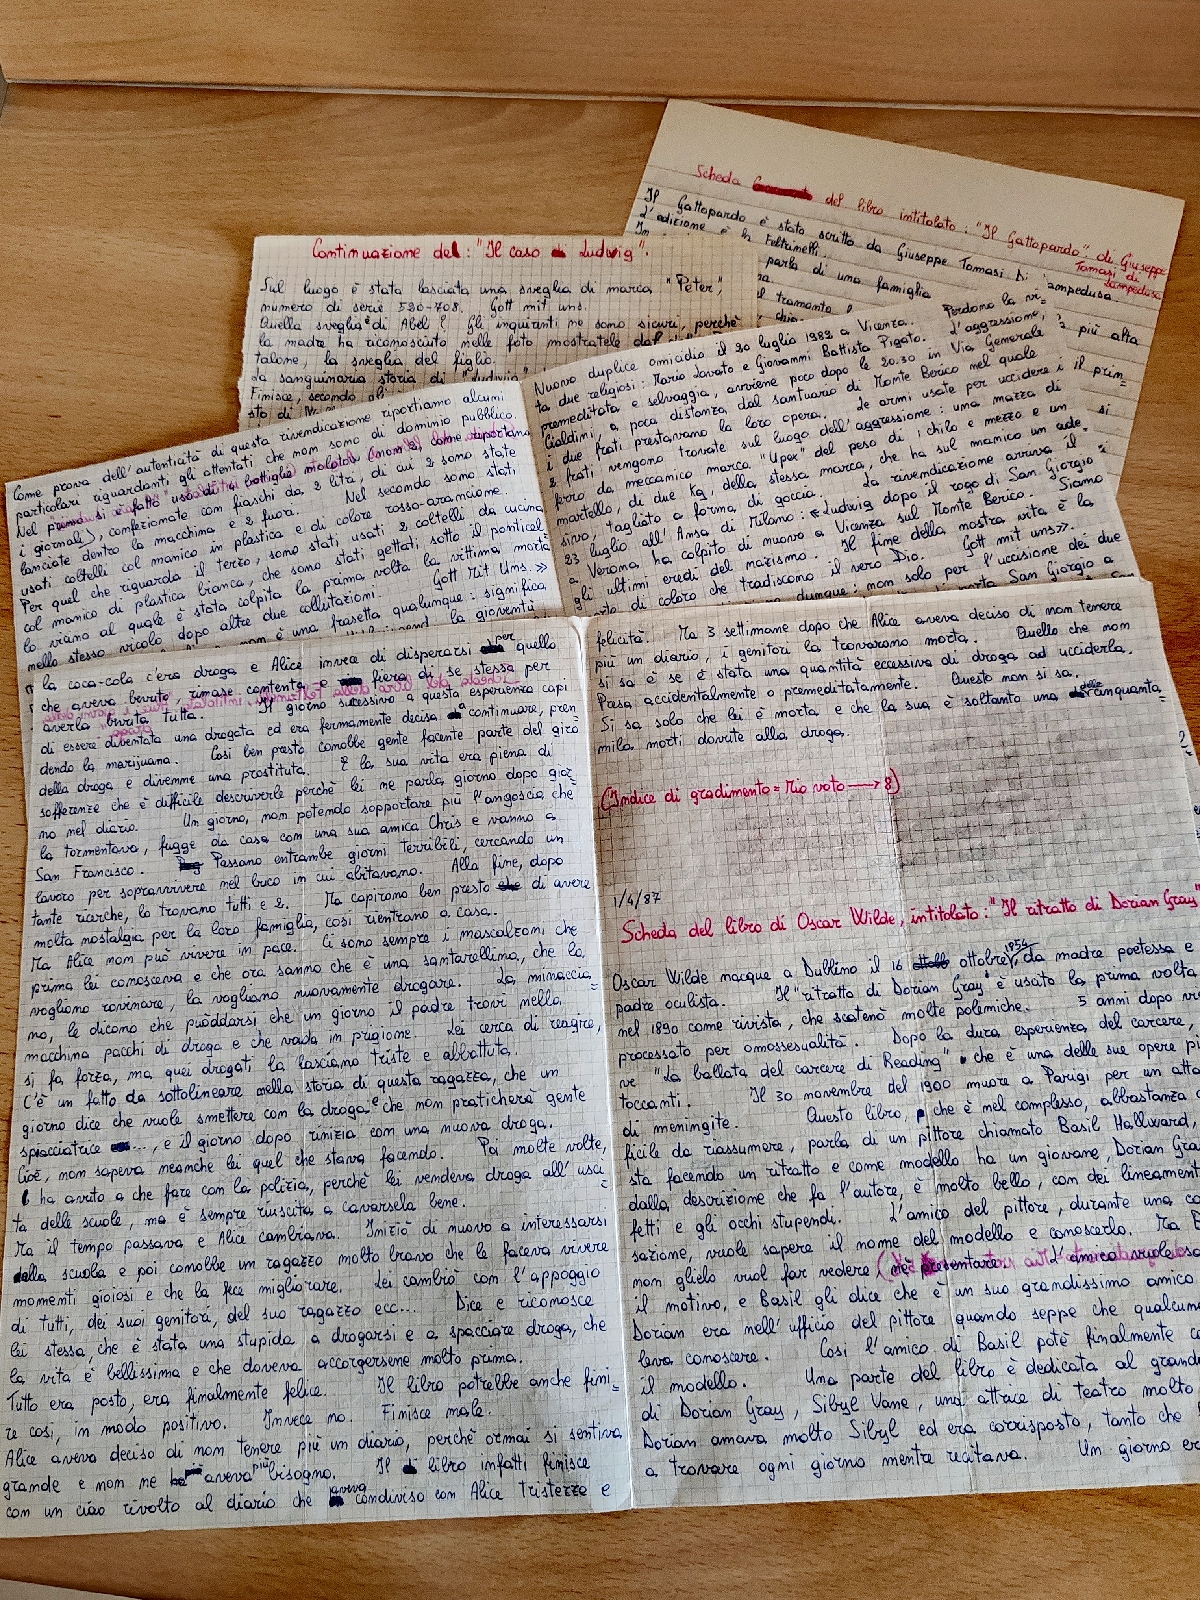 Scheda del libro intitolato: "Il Gattopardo", di Giuseppe
Tomasi di
Lampedusa
Il Gattopardo è stato scritto da Giuseppe Tomasi Di
ampedusa.
L'edizione è la Feltrinelli.
parla di una famiglia
il tramonto
più alta
il prim=
si
Continuazione del: "Il caso di Ludwig".
Sul luogo è stata lasciata una sveglia di marca "Peter",
numero di serie 520-708. Gott mit uns.
Quella sveglia è di Abel? Gli inquirenti ne sono sicuri, perchè
la madre ha riconosciuto nelle foto mostratele dal
talone, la sveglia del figlio.
La sanguinaria storia di "Ludwig"
Finisce, secondo
Nuovo duplice omicidio il 20 luglio 1982 a Vicenza. Perdono la vi=
ta due religiosi: Mario Lovato e Giovanni Battista Pigato. L'aggressione,
premeditata e selvaggia, avviene poco dopo le 20.30 in Via Generale
Cialdini, a poca distanza dal santuario di Monte Berico nel quale
i due frati prestavano la loro opera. Le armi usate per uccidere i
2 frati vengono trovate sul luogo dell'aggressione: una mazza di
ferro da meccanico marca "Upex" del peso di 1 chilo e mezzo e un
martello, di due kg, della stessa marca, che ha sul manico un ade=
sivo, tagliato a forma di goccia. La rivendicazione arriva il
23 luglio all'Ansa di Milano: «Ludwig dopo il rogo di San Giorgio
a Verona ha colpito di nuovo a Vicenza sul Monte Berico. Siamo
gli ultimi eredi del nazismo. Il fine della nostra vita è la
di coloro che tradiscono il vero Dio. Gott mit uns».
dunque: non solo per l'uccisione dei due
San Giorgio a
Come prova dell'autenticità di questa rivendicazione riportiamo alcuni
particolari riguardanti gli attentati che non sono di dominio pubblico.
Nel primo si è fatto uso di 4 bottiglie molotov (non 2, come riportano
i giornali), confezionate com fiaschi da 2 lita, di cui 2 sono state
lanciate dentro la macchina e 2 fuori. Nel secondo sono stati
usati coltelli col manico in plastica e di colore rosso-arancione.
Per quel che riguarda il terzo, sono stati usati 2 coltelli da cucina
col manico di plastica bianca, che sono stati gettati sotto il ponticel
lo vicino al quale è stata colpita la prima volta la vittima morta
nello stesso vicolo dopo altre due colluttazioni. Gott Mit Uns.»
non è una frasetta qualunque: significa
la gioventù
la coca-cola c'era droga e Alice invece di disperarsi per quello
che aveva bevuto, rimase contenta e fiera di se stessa per
averla bevuta tutta. Il giorno sucessivo a questa esperienza capì
di essere diventata una drogata ed era fermamente decisa a continuare, pren
dendo la marijuana. Così ben presto conobbe gente facente parte del giro
della droga e divenne una prostituta. E la sua vita era piena di
sofferenze che è difficile descriverle perchè lei ne parla giorno dopo gior=
no nel diario. Un giorno, non potendo sopportare più l'angoscia che
la tormentava, fugge da casa com una sua amica Chris e vanno a
San Francisco. Passano entrambe giorni terribili, cercando un
lavoro per sopravvivere nel buco in cui abitavano. Alla fine, dopo
tante ricerche, lo trovano tutti e 2. Ma capirono ben presto di avere
molta nostalgia per la loro famiglia, così rientrano a casa.
Ma Alice non può vivere in pace. Ci sono sempre i mascalzoni che
prima lei conosceva e che ora sanno che è una santarellina, che la
vogliono rovinare, la vogliono nuovamente drogare. La minaccia=
no, le dicono che può darsi che un giorno il padre trovi nella
macchina pacchi di droga e che vada in prigione. Lei cerca di reagire,
si fa forza, ma quei drogati la lasciano triste e abbattuta.
C'è un fatto da sottolineare nella storia di questa ragazza, che un
giorno dice che vuole smettere con la droga e che non praticherà gente
spiacciatrice ..., e il giorno dopo rinizia con una nuova droga.
Cioè, non sapeva neanche lei quel che stava facendo. Poi molte volte,
ha avuto a che fare con la polizia, perchè lei vendeva droga all'usci
ta delle scuole, ma è sempre riuscita a cavarsela bene.
Ma il tempo passava e Alice cambiava. Iniziò di nuovo a interessarsi
della scuola e poi conobbe un ragazzo molto bravo che le faceva vivere
momenti gioiosi e che la fece migliorare. Lei cambiò com l'appoggio
di tutti, dei suoi genitori, del suo ragazzo ecc... Dice e riconosce
lei stessa, che è stata una stupida a drogarsi e a spacciare droga, che
la vita è bellissima e che doveva accorgersene molto prima.
Tutto era posto, era finalmente felice. Il libro potrebbe anche fini=
re così, in modo positivo. Invece no. Finisce male.
Alice aveva deciso di non tenere più un diario, perchè ormai si sentiva
grande e non ne aveva più bisogno. Il libro infatti finisce
con un ciao rivolto al diario che aveva condiviso con Alice tristezze e
felicità. Ma 3 settimane dopo che Alice aveva deciso di non tenere
più un diario, i genitori la trovarono morta. Quello che non
si sa è se è stata una quantità eccessiva di droga ad ucciderla.
Presa accidentalmente o premeditatamente. Questo non si sa.
Si sa solo che lei è morta e che la sua è soltanto una delle cinquanta=
mila morti dovute alla droga.
(Indice di gradimento = Mio voto → 8)
1/4/87
Scheda del libro di Oscar Wilde, intitolato: "Il ritratto di Dorian Gray"
Oscar Wilde nacque a Dublino il 16 ottobre 1854, da madre poetessa e
padre oculista. Il "ritratto di Dorian Gray" è usato la prima volta
nel 1890 come rivista, che scatenò molte polemiche. 5 anni dopo
processato per omossesualità. Dopo la dura esperienza del carcere,
ve "La ballata del carcere di Reading" che è una delle sue opere
toccanti. Il 30 novembre del 1900 muore a Parigi per un
di meningite. Questo libro, che è nel complesso, abbastanza
ficile da riassumere, parla di un pittore chiamato Basil Hallward,
sta facendo un ritratto e come modello ha un giovane, Dorian Gray
dalla descrizione che fa l'autore, è molto bello, con dei lineamenti
fetti e gli occhi stupendi. L'amico del pittore, durante una
sazione, vuole sapere il nome del modello e conoscerlo. Ma
non glielo vuol far vedere ( presentare L'amico vuole
il motivo, e Basil gli dice che è un suo grandissimo amico
Dorian era nell'ufficio del pittore quando seppe che qualcuno
leva conoscere. Così l'amico di Basil potè finalmente
il modello. Una parte del libro è dedicata al grande
di Dorian Gray, Sibyl Vane, una attrice di teatro molto
Dorian amava molto Sibyl ed era corrisposto, tanto che
a trovare ogni giorno mentre recitava. Un giorno